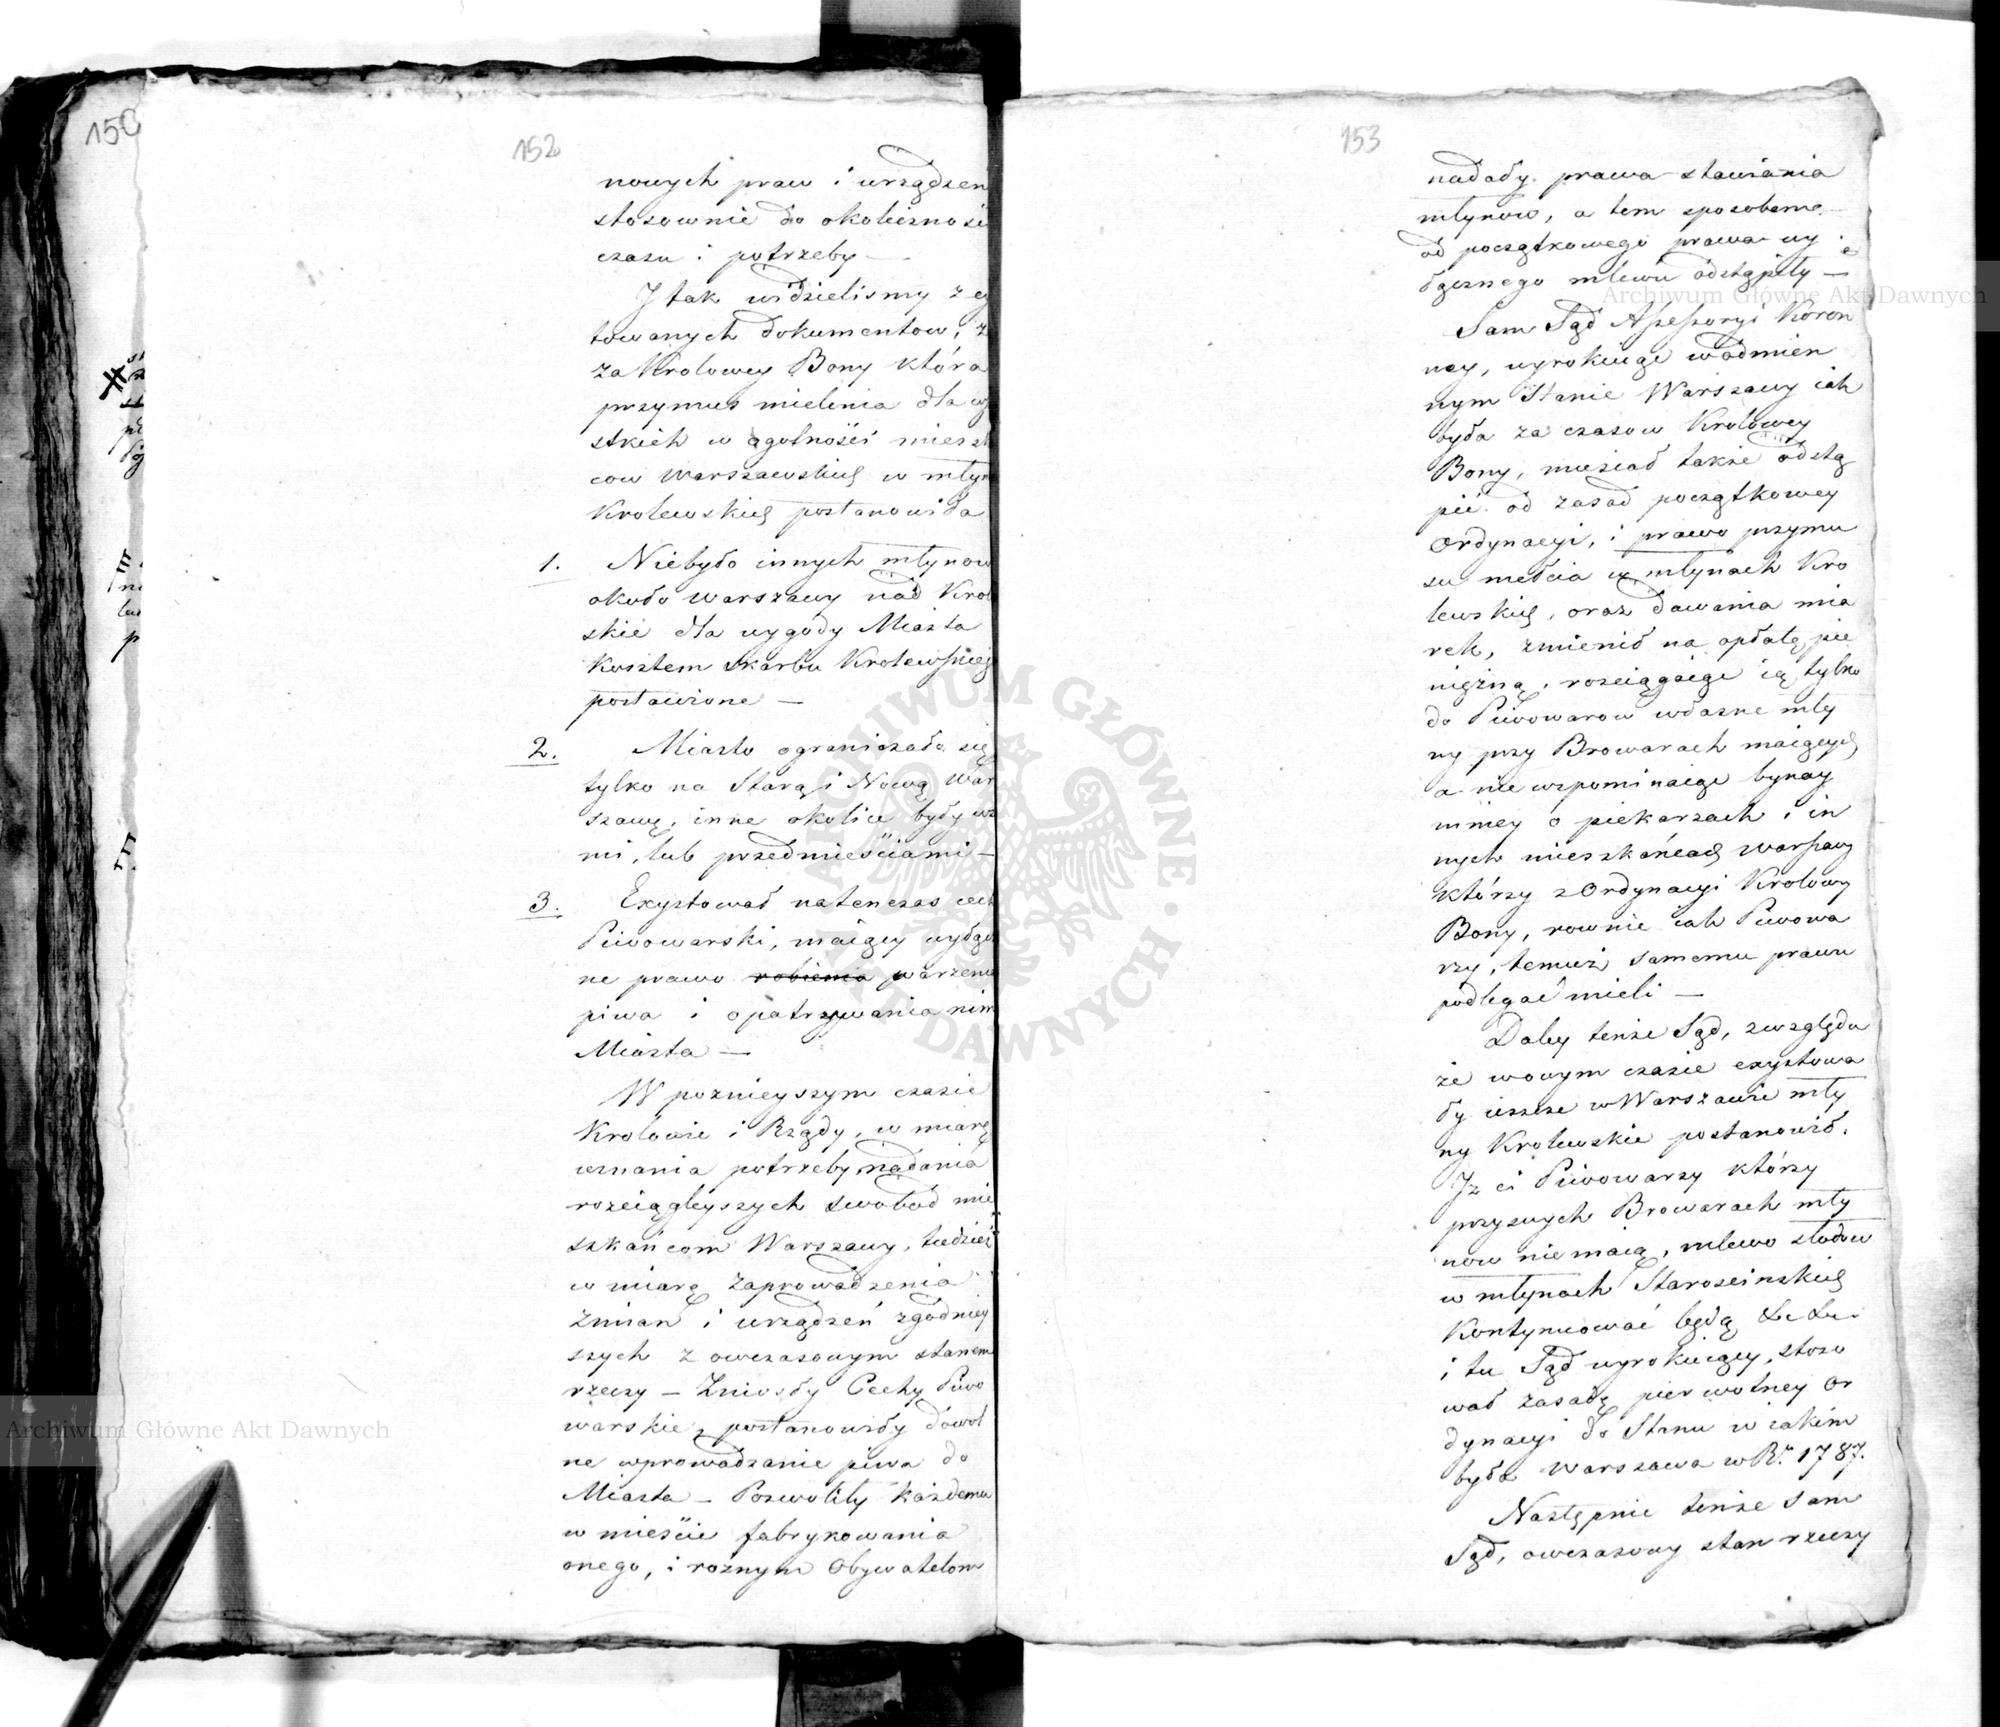 150
152
nowych praw i urządzen
stosownie do okolicznosci
czasu i potrzeby —
I tak widzielismy z cy
towanych dokumentow, ze
za Krolowey Bony która
przymus mielenia dla wszy
stkich w ogolności miesz
cow Warszawskich w młyn
Krolewskich postanowiła
1. Niebyło innych młynow
około Warszawy nad Krol
skie dla wygody Miasta
kosztem skarbu Krolewskiego
postawione —
2. Miasto ograniczało się
tylko na Starą i Nową War
szawę, inne okolice były ws
mi, lub przedmieściami —
3. Exystował natenczas cech
Piwowarski, maiący wyłącz
ne prawo robienia warzenia
piwa i opatrywania nim
Miasta —
W poznieyszym czasie
Krolowie i Rządy, w miarę
uznania potrzeby nadania
rozciągleyszych swobod mie
szkańcom Warszawy, tudzież
w miarę zaprowadzenia
zmian i urządzeń zgodniey
szych z owczasowym stanem
rzeczy — Zniosły Cechy Piwo
warskie, postanowiły dowol
ne wprowadzanie piwa do
Miasta — Pozwoliły każdemu
w mieście fabrykowania
onego, i roznym Obywatelom
153
nadały prawa stawiania
młynow, a tem sposobem
od początkowego prawa wy
łącznego mlewa odstąpiły —
Sam Sąd Assessoryi Koron
ney, wyrokuiąc w odmien
nym Stanie Warszawy iak
była za czasow Krolowey
Bony, musiał także odstą
pić od zasad początkowey
Ordynacyi, i prawo przymu
su mełcia w młynach Kro
lewskich, oraz dawania mia
rek, zmienił na opłatę pie
niężną, rozciągaiąc ią tylko
do Piwowarow własne mły
ny przy Browarach maiących
a nie wspominaiąc bynay
mniey o piekarzach i in
nych mieszkańcach Warszawy
którzy z Ordynacyi Krolowy
Bony, rownie iak Piwowa
rzy, temuż samemu prawu
podlegać mieli —
Daley tenże Sąd, zwzględu
że wowym czasie exystowa
ły ieszcze w Warszawie mły
ny Krolewskie postanowił.
Iż ci Piwowarzy którzy
przy swych Browarach mły
now nie maią, mlewo słodow
w młynach Starościnskich
kontynuować będą &c &c.
i tu Sąd wyrokuiący, stoso
wał zasadę pierwotney Or
dynacyi do Stanu w iakim
była Warszawa w R. 1787.
Następnie tenże sam
Sąd, owczasowy stan rzeczy
Archiwum Główne Akt Dawnych
Archiwum Główne Akt Dawnych
ARCHIWUM GŁÓWNE AKT DAWNYCH